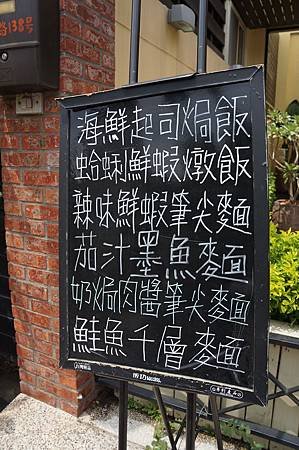 路138号
海鮮起司焗飯
蛤蜊鮮蝦燉飯
辣味鮮蝦筆尖麵
茄汁墨魚麵
奶焗肉醬筆尖麵
鮭魚千層麵